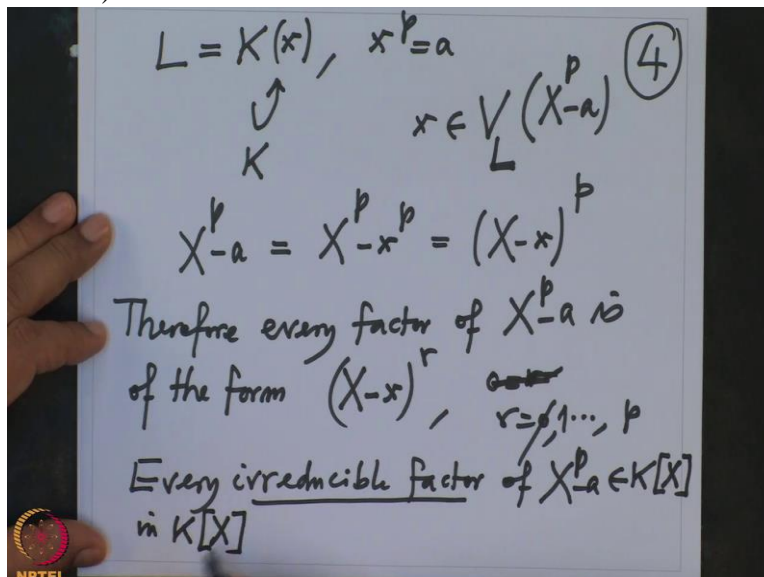 L = K(x), x^p = a
④
K
x ∈ V_L (X^p - a)
X^p - a = X^p - x^p = (X - x)^p
Therefore every factor of X^p - a is
of the form (X - x)^r,
r = 0, 1 ⋯, p
Every irreducible factor of X^p - a ∈ K[X]
in K[X]
NPTEL